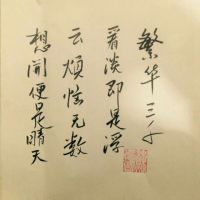 繁华三千
看淡即是浮
云烦恼无数
想开便是晴天